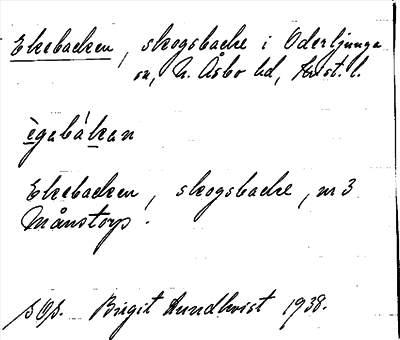 Ekebacken, skogsbacke i Oderljunga
sn, N. Åsbo hd, Krist. l.
ègabákan
Ekebacken, skogsbacke, nr 3
Månstorp.
s Os. Birgit Lundkvist 1938.